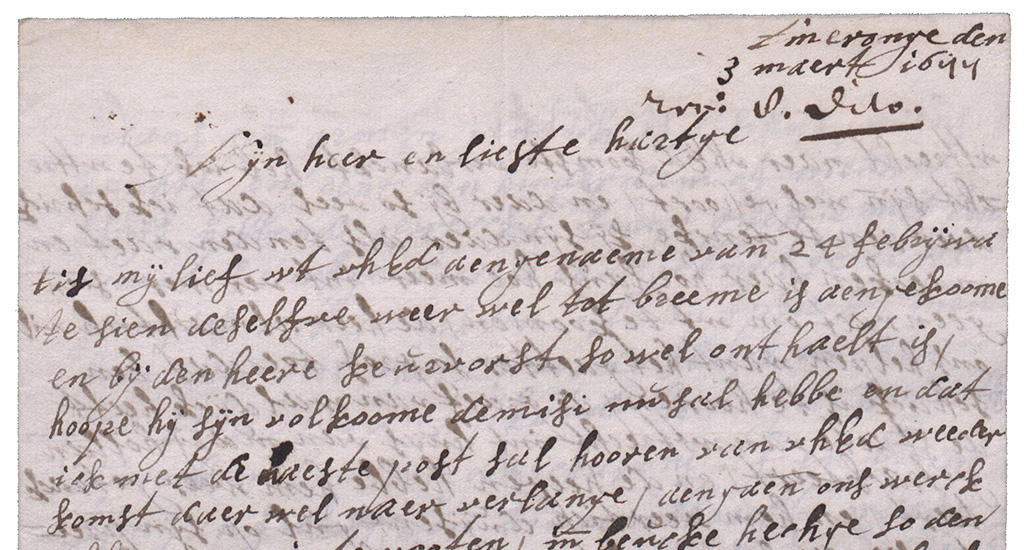 Ameronge den
3 maert 1677
Rec: d. Dito.
Myn heer en lieste hartge
tis mij lief wt uhEd aengenaeme van 24 febrywa
te sien deselfve weer wel tot breeme is aengekoome
en bij den heere keurvorst so wel onthaelt is,
hoope hij sijn volkoome demisi nu sal hebbe en dat
ick met de naeste post sal hooren van uhEd weeder
komst daer wel naer verlange, aengaen ons werck
in beucke hechge so den